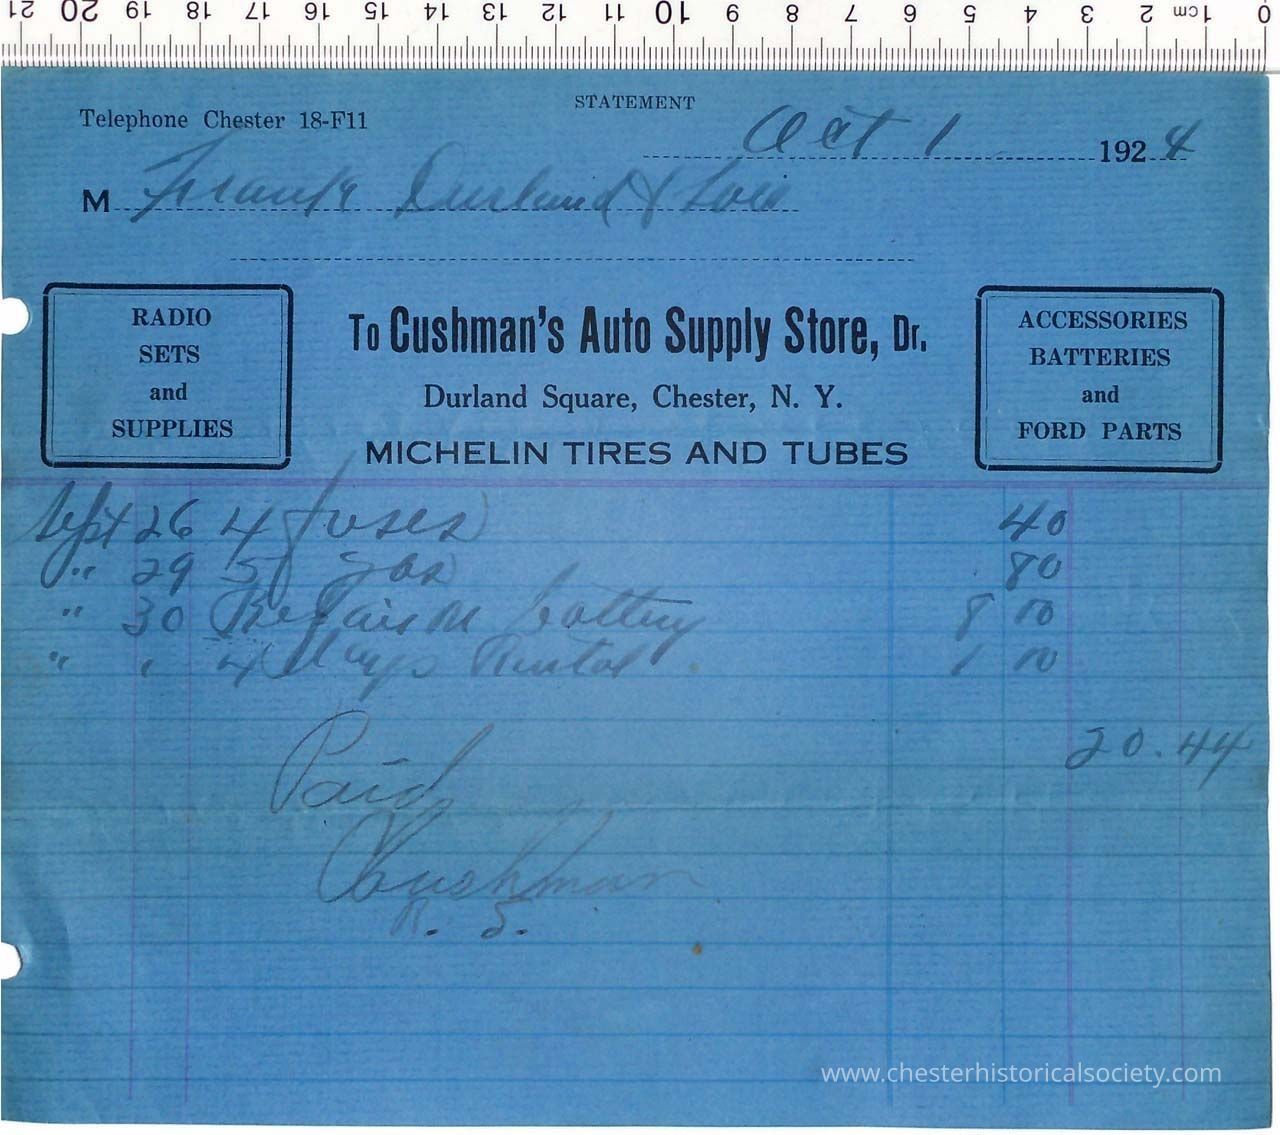 0 1cm 2 3 4 5 6 7 8 9 10 11 12 13 14 15 16 17 18 19 20 21
STATEMENT
Telephone Chester 18-F11
Oct 1 1924
M Frank Durland &
RADIO
SETS
and
SUPPLIES
To Cushman's Auto Supply Store, Dr.
Durland Square, Chester, N. Y.
MICHELIN TIRES AND TUBES
ACCESSORIES
BATTERIES
and
FORD PARTS
Sept 26 4 fuses 40
" 29 5 gas 80
" 30 Repairs battery 8 00
" " 4 Days Rental 1 00
20.44
Paid
Cushman
R. S.
www.chesterhistoricalsociety.com